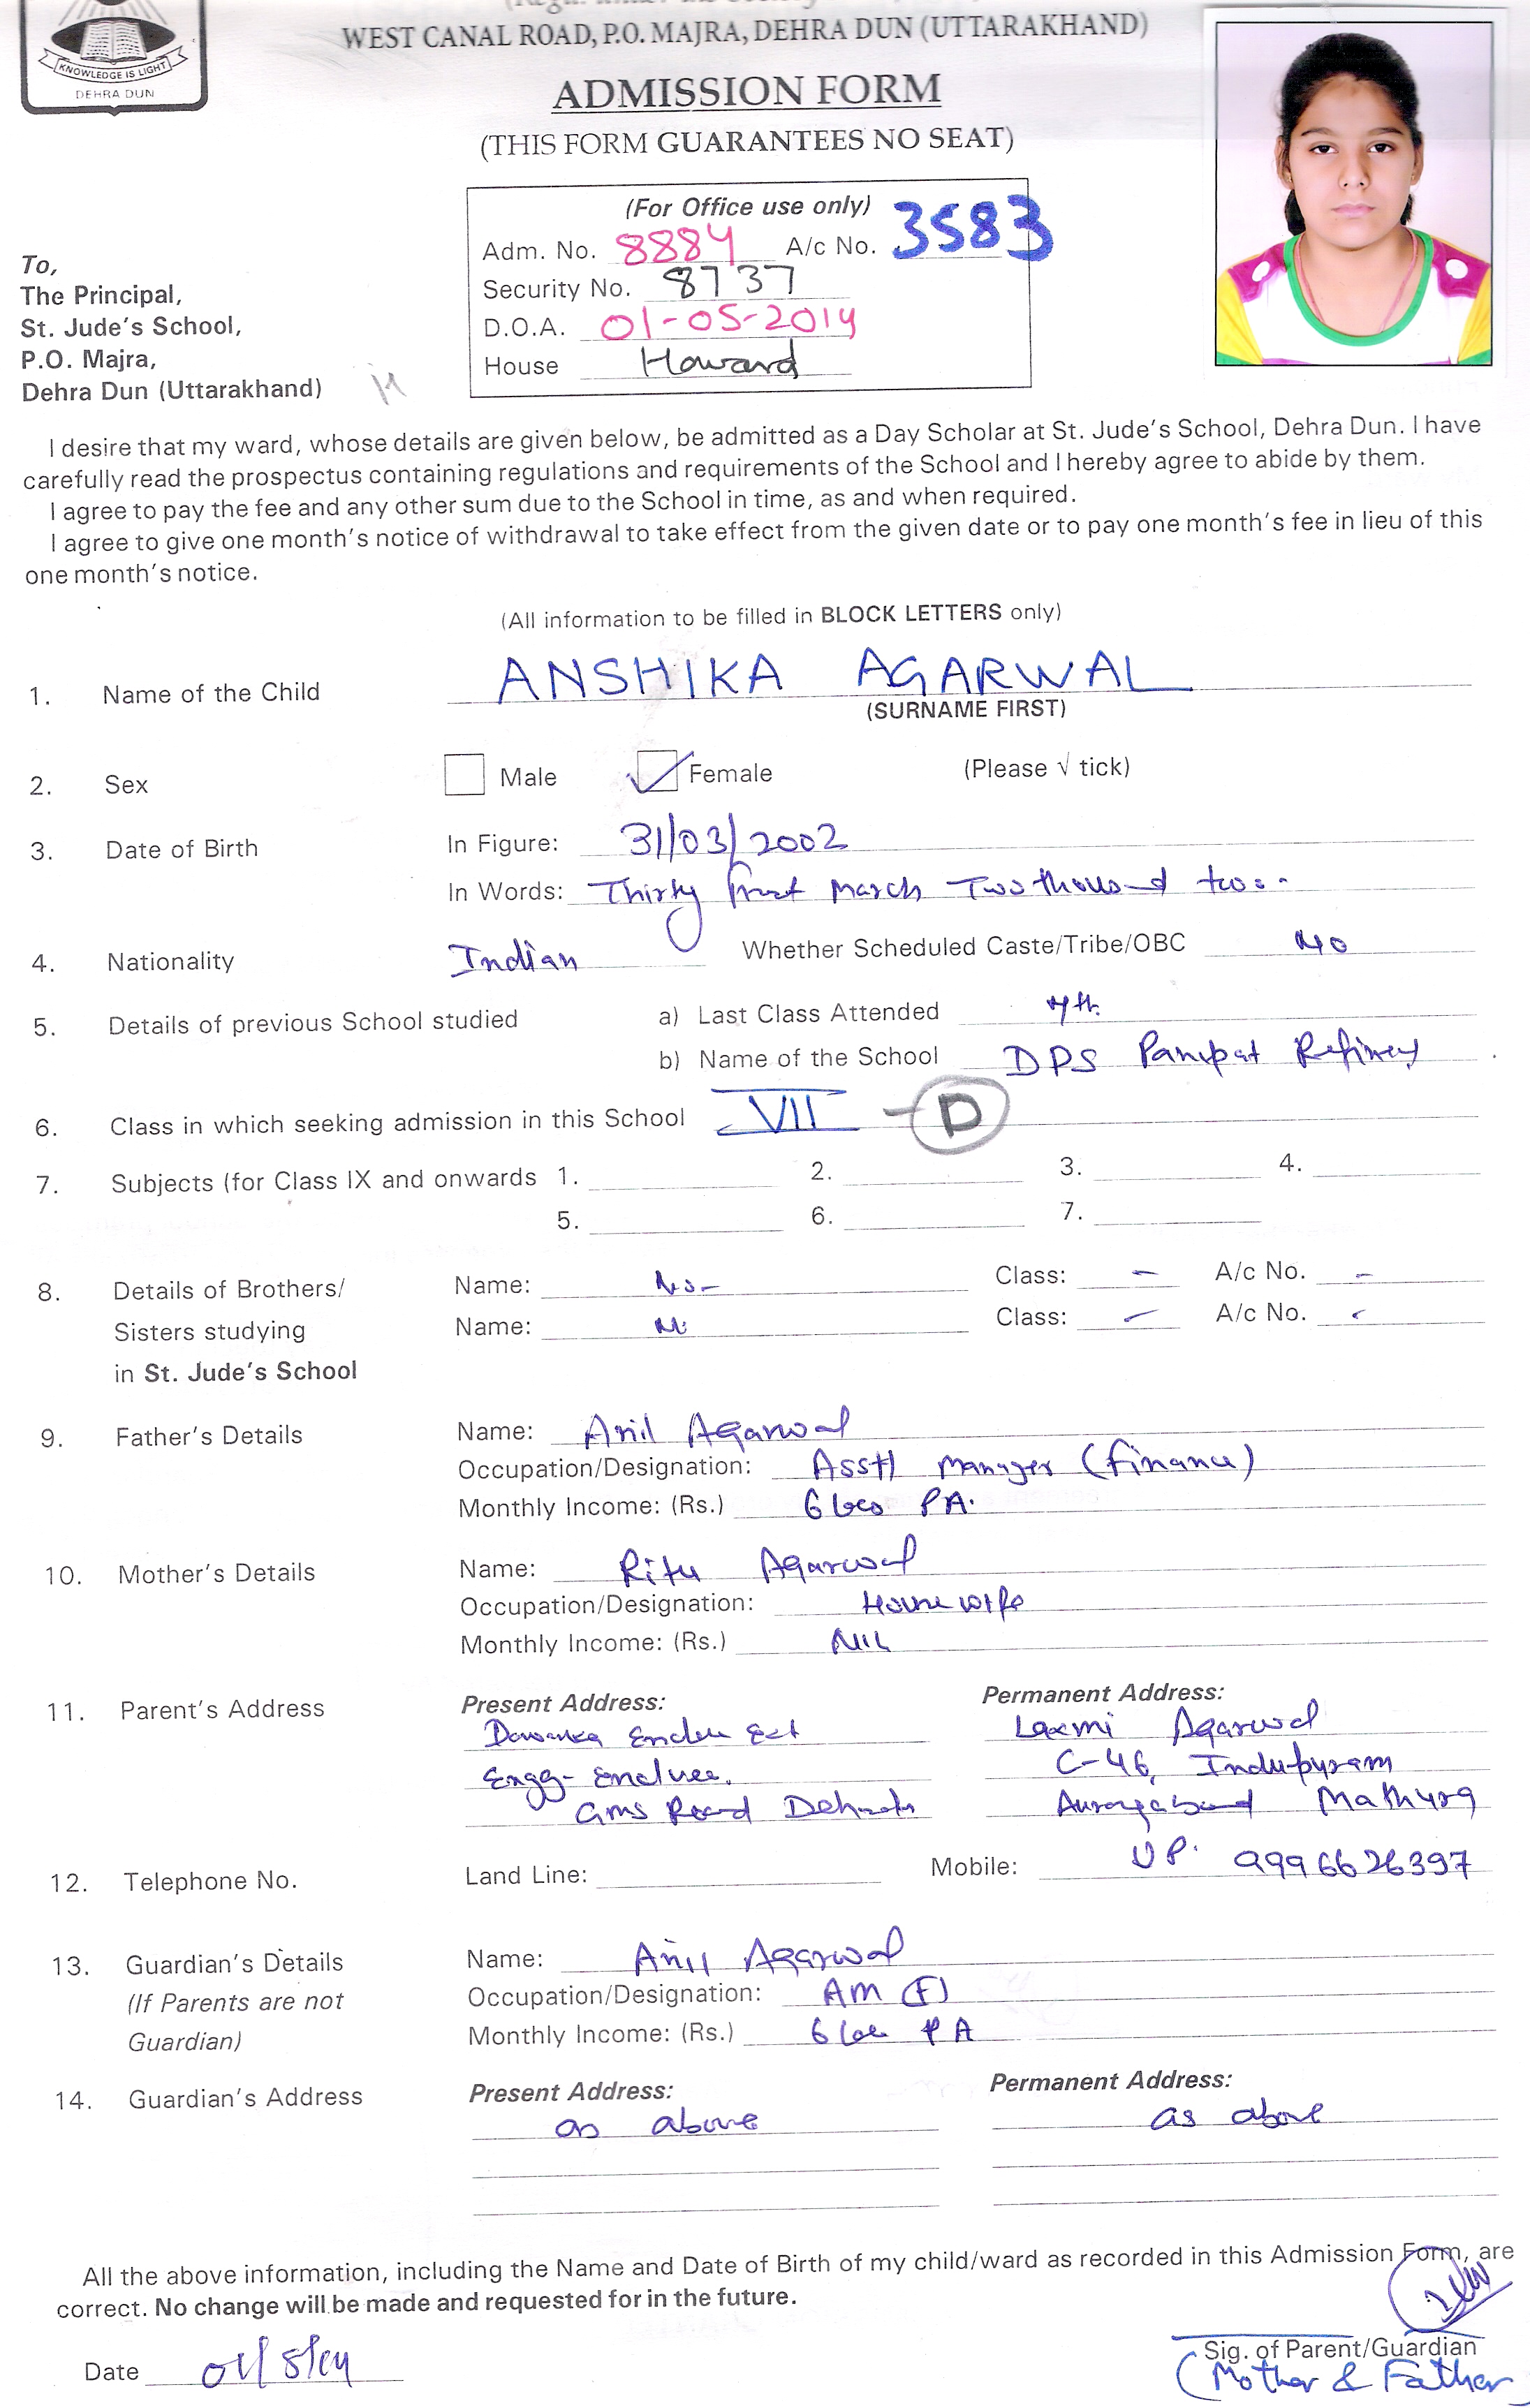 KNOWLEDGE IS LIGHT
DEHRA DUN
WEST CANAL ROAD, P.O. MAJRA, DEHRA DUN (UTTARAKHAND)
ADMISSION FORM
(THIS FORM GUARANTEES NO SEAT)
(For Office use only)
Adm. No. 8884 A/c No. 3583
Security No. 8737
D.O.A. 01-05-2014
House Howard
To,
The Principal,
St. Jude's School,
P.O. Majra,
Dehra Dun (Uttarakhand)
I desire that my ward, whose details are given below, be admitted as a Day Scholar at St. Jude's School, Dehra Dun. I have
carefully read the prospectus containing regulations and requirements of the School and I hereby agree to abide by them.
I agree to pay the fee and any other sum due to the School in time, as and when required.
I agree to give one month's notice of withdrawal to take effect from the given date or to pay one month's fee in lieu of this
one month's notice.
(All information to be filled in BLOCK LETTERS only)
1. Name of the Child ANSHIKA AGARWAL
(SURNAME FIRST)
2. Sex Male Female (Please √ tick)
3. Date of Birth In Figure: 31/03/2002
In Words: Thirty first March Two thousand two
4. Nationality Indian Whether Scheduled Caste/Tribe/OBC NO
5. Details of previous School studied a) Last Class Attended 7th
b) Name of the School DPS Panipat Refinery
6. Class in which seeking admission in this School VII - D
7. Subjects (for Class IX and onwards 1. 2. 3. 4.
5. 6. 7.
8. Details of Brothers/ Name: No- Class: - A/c No. -
Sisters studying Name: Class: - A/c No. -
in St. Jude's School
9. Father's Details Name: Anil Agarwal
Occupation/Designation: Asstt Manager (Finance)
Monthly Income: (Rs.) 6 PA.
10. Mother's Details Name: Ritu Agarwal
Occupation/Designation: House wife
Monthly Income: (Rs.) NIL
11. Parent's Address Present Address: Permanent Address:
Laxmi Agarwal
Engg- Enclave. C-46, Indupuram
GMS Road Aurangabad Mathura
UP.
12. Telephone No. Land Line: Mobile: 9996626397
13. Guardian's Details Name: Anil Agarwal
(If Parents are not Occupation/Designation: AM (F)
Guardian) Monthly Income: (Rs.) 6 PA
14. Guardian's Address Present Address: Permanent Address:
as above as above
All the above information, including the Name and Date of Birth of my child/ward as recorded in this Admission Form, are
correct. No change will be made and requested for in the future.
Date 01/5/14 Sig. of Parent/Guardian
(Mother & Father)